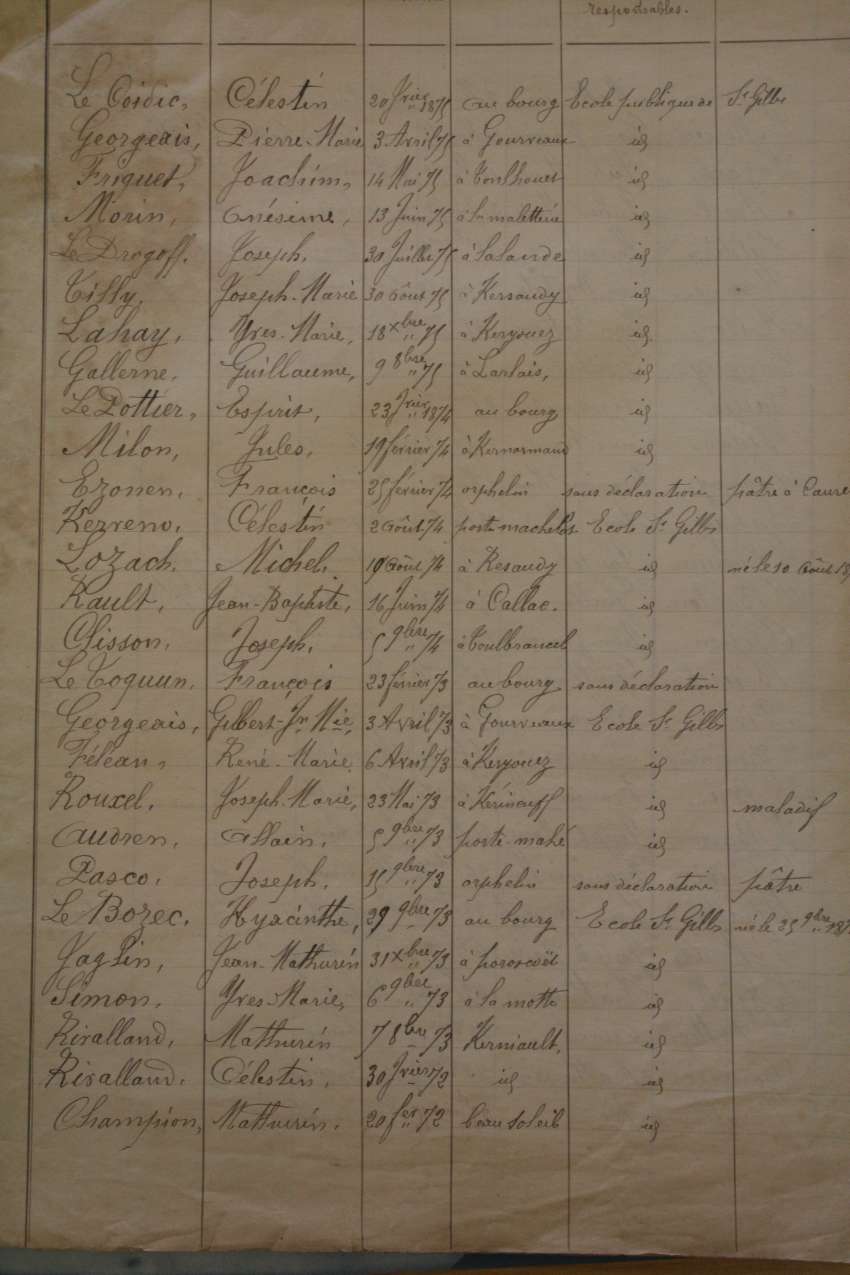 responsables.
Le Coidic, Célestin 20 Jvier 1875 au bourg Ecole publique de St Gilbs
Georgeais, Pierre-Marie 3 Avril 75 à Gourveaux id
Friquet, Joachim, 14 Mai 75 à Toulhouet id
Morin, Onésime, 13 Juin 75 à la maletterie id
Le Drogoff, Joseph, 30 Juillet 75 à Salaude id
Tilly, Joseph-Marie 30 Août 75 à Kersaudy id
Lahay, Yves-Marie, 18 Xbre 75 à Keryouez id
Gallerne, Guillaume, 9 8bre 75 à Larlais, id
Le Pottier, Esprit, 23 Jvier 1874 au bourg id
Milon, Jules, 19 février 74 à Kernormand id
Ezonen, François 25 février 74 orphelin sans déclaration pâtre à Caure
Kerreno, Célestin 2 Août 74 Ecole St Gilbs
Lozach, Michel, 19 Août 74 à Resaudy id né le 10 Août 18
Rault, Jean-Baptiste, 16 Juin 74 à Callac. id
Clisson, Joseph, 5 9bre 74 à Toulbrancel id
Le Toquun, François 23 février 73 au bourg sans déclaration
Georgeais, Gilbert-Jn Mie, 3 Avril 73 à Gourveaux Ecole St Gilbs
Féléan, René-Marie, 6 Avril 73 à Keryouez id
Rouxel, Joseph-Marie, 23 Mai 73 à Kérineuff id maladif
Audren, Allain, 5 9bre 73 porte-mahé id
Pasco, Joseph, 15 9bre 73 orphelin sans déclaration pâtre
Le Bozec, Hyacinthe, 29 9bre 73 au bourg Ecole St Gilbs né le 25 9bre 187
Jaglin, Jean-Mathurin 31 Xbre 73 à pororcoët id
Simon, Yves-Marie, 6 9bre 73 à la motte id
Rivalland, Mathurin 7 8bre 73 Kerniault, id
Rivalland, Célestin, 30 Jvier 72 id id
Champion, Mathurin, 20 fer 72 beau soleil id